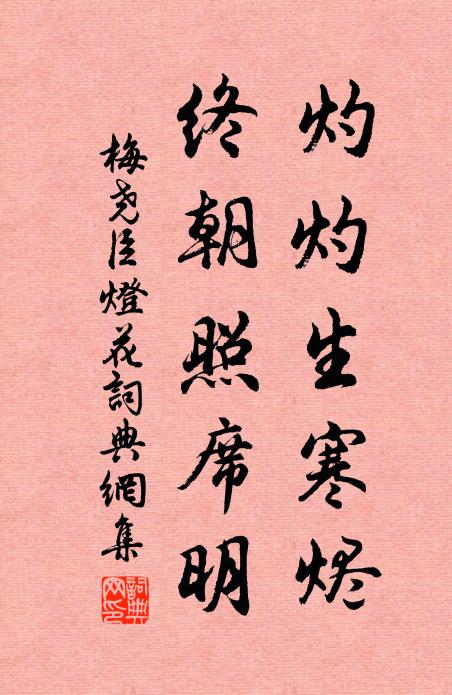 灼灼生寒烬
终朝照席明
梅尧臣燈花詞典網集
詞典网印